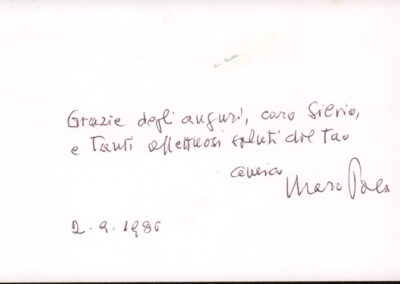 Grazie degli auguri, caro Silvio,
e tanti affettuosi saluti dal tuo
amico
2.9.1986